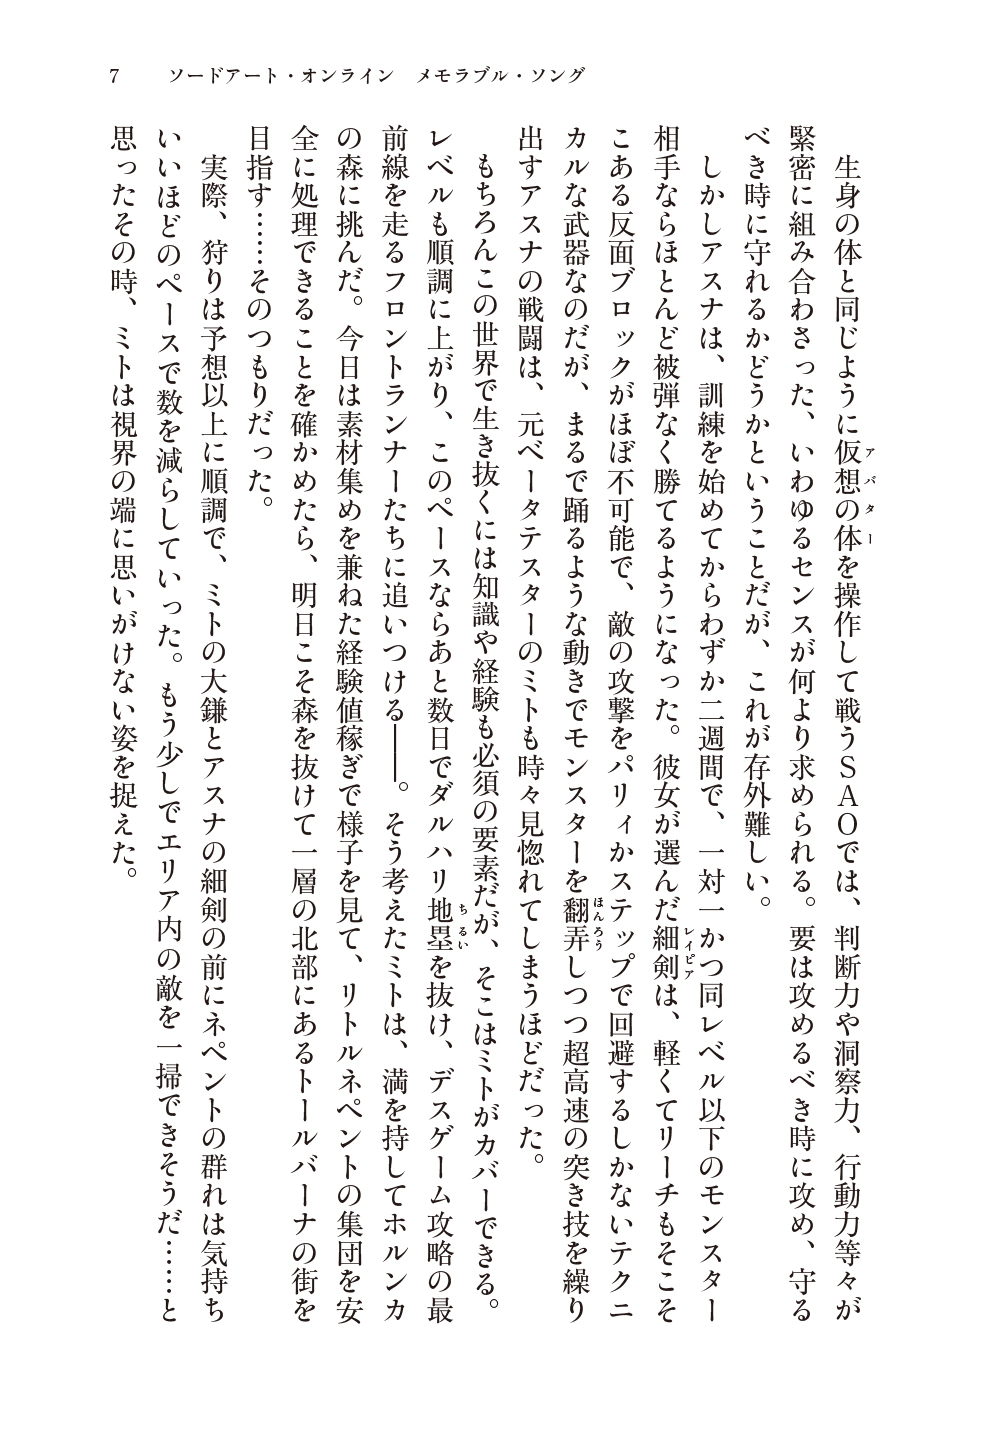 7　ソードアート・オンライン　メモラブル・ソング
　生身の体と同じように仮想の体を操作して戦うＳＡＯでは、判断力や洞察力、行動力等々が
アバター
緊密に組み合わさった、いわゆるセンスが何より求められる。要は攻めるべき時に攻め、守る
べき時に守れるかどうかということだが、これが存外難しい。
　しかしアスナは、訓練を始めてからわずか二週間で、一対一かつ同レベル以下のモンスター
相手ならほとんど被弾なく勝てるようになった。彼女が選んだ細剣は、軽くてリーチもそこそ
レイピア
こある反面ブロックがほぼ不可能で、敵の攻撃をパリィかステップで回避するしかないテクニ
カルな武器なのだが、まるで踊るような動きでモンスターを翻弄しつつ超高速の突き技を繰り
ほんろう
出すアスナの戦闘は、元ベータテスターのミトも時々見惚れてしまうほどだった。
　もちろんこの世界で生き抜くには知識や経験も必須の要素だが、そこはミトがカバーできる。
レベルも順調に上がり、このペースならあと数日でダルハリ地塁を抜け、デスゲーム攻略の最
ちるい
前線を走るフロントランナーたちに追いつける――。そう考えたミトは、満を持してホルンカ
の森に挑んだ。今日は素材集めを兼ねた経験値稼ぎで様子を見て、リトルネペントの集団を安
全に処理できることを確かめたら、明日こそ森を抜けて一層の北部にあるトールバーナの街を
目指す……そのつもりだった。
　実際、狩りは予想以上に順調で、ミトの大鎌とアスナの細剣の前にネペントの群れは気持ち
いいほどのペースで数を減らしていった。もう少しでエリア内の敵を一掃できそうだ……と
思ったその時、ミトは視界の端に思いがけない姿を捉えた。